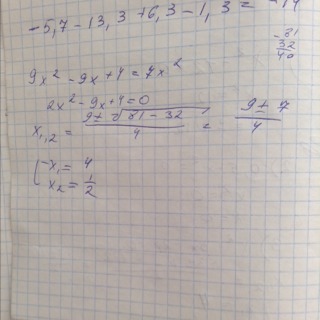 -5,7 - 13,3 + 6,3 - 1,3 = -14
-81
32
40
9x² - 9x + 4 = 7x²
2x² - 9x + 4 = 0
x₁,₂ = 9 ± √81 - 32 / 4 = 9 ± 7 / 4
x₁ = 4
x₂ = 1/2